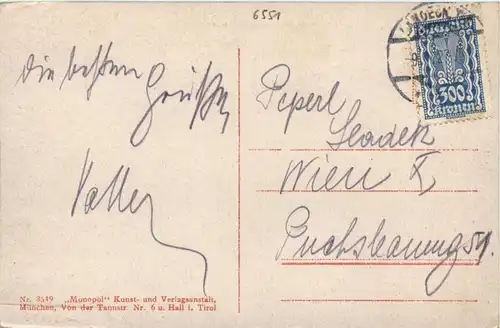 6551
die besten
Grüße
Vater
Peperl
Wien X
Puchsbaumg 54.
300
Kronen
Nr. 3549 „Monopol" Kunst- und Verlagsanstalt,
München, Von der Tannstr. Nr. 6 u. Hall i. Tirol